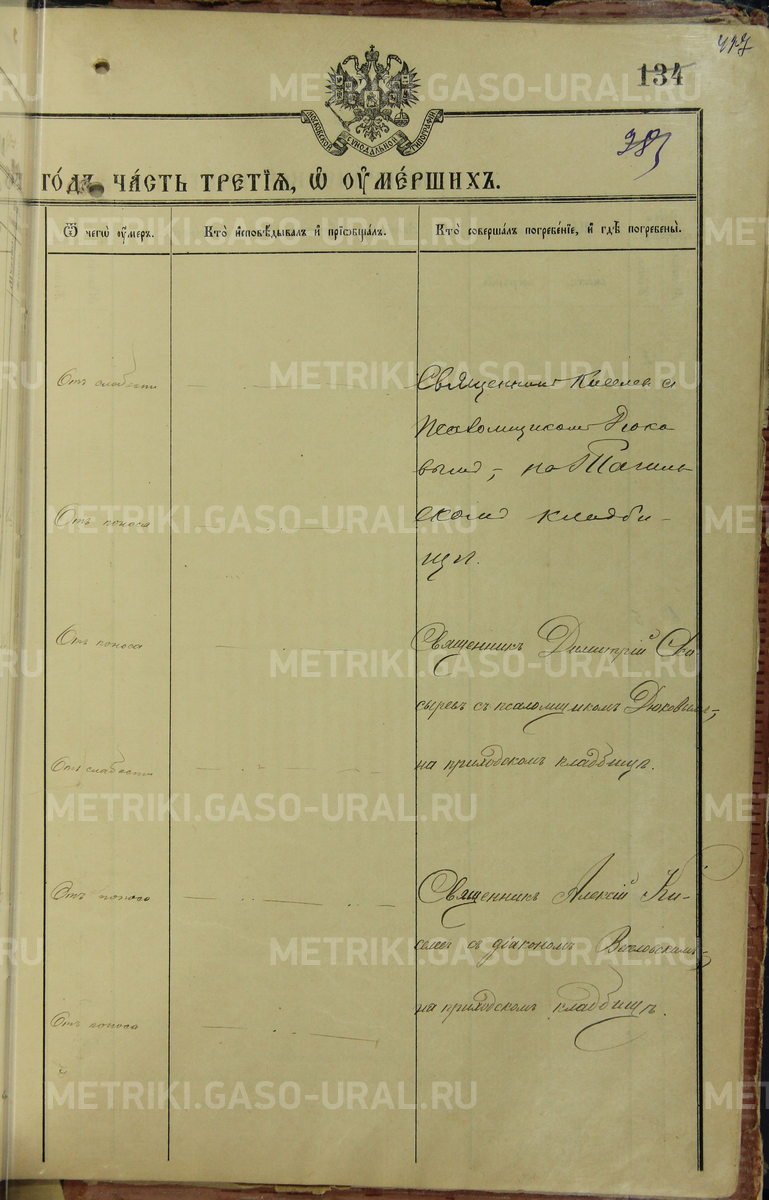 134
МОСКОВСКОЙ СѴНОДАЛЬНОЙ ТИПОГРАФІИ
ГО́ДЪ, ЧА́СТЬ ТРЕ́ТІѦ, Ѽ ОУ҆МЕ́РШИХЪ.
Ѿ чегѡ̀ оу҆́меръ.
Кто̀ и҆сповѣ́дывалъ и҆ прїѡбща́лъ.
Кто̀ соверша́лъ погребе́нїе, и҆ гдѣ̀ погребены̀.
Отъ слабости
Священникъ Киселев с
Псаломщикомъ Дюко
вымъ, на Тагиль
скомъ кладби-
щѣ.
Отъ поноса
Отъ поноса
Священникъ Димитрій
сыревъ съ псаломщикомъ Дюковымъ,
на приходскомъ кладбищѣ.
Отъ слабости
Отъ поноса
Священникъ Алексій Ки-
селев съ діакономъ
на приходскомъ кладбищѣ.
Отъ поноса
METRIKI.GASO-URAL.RU